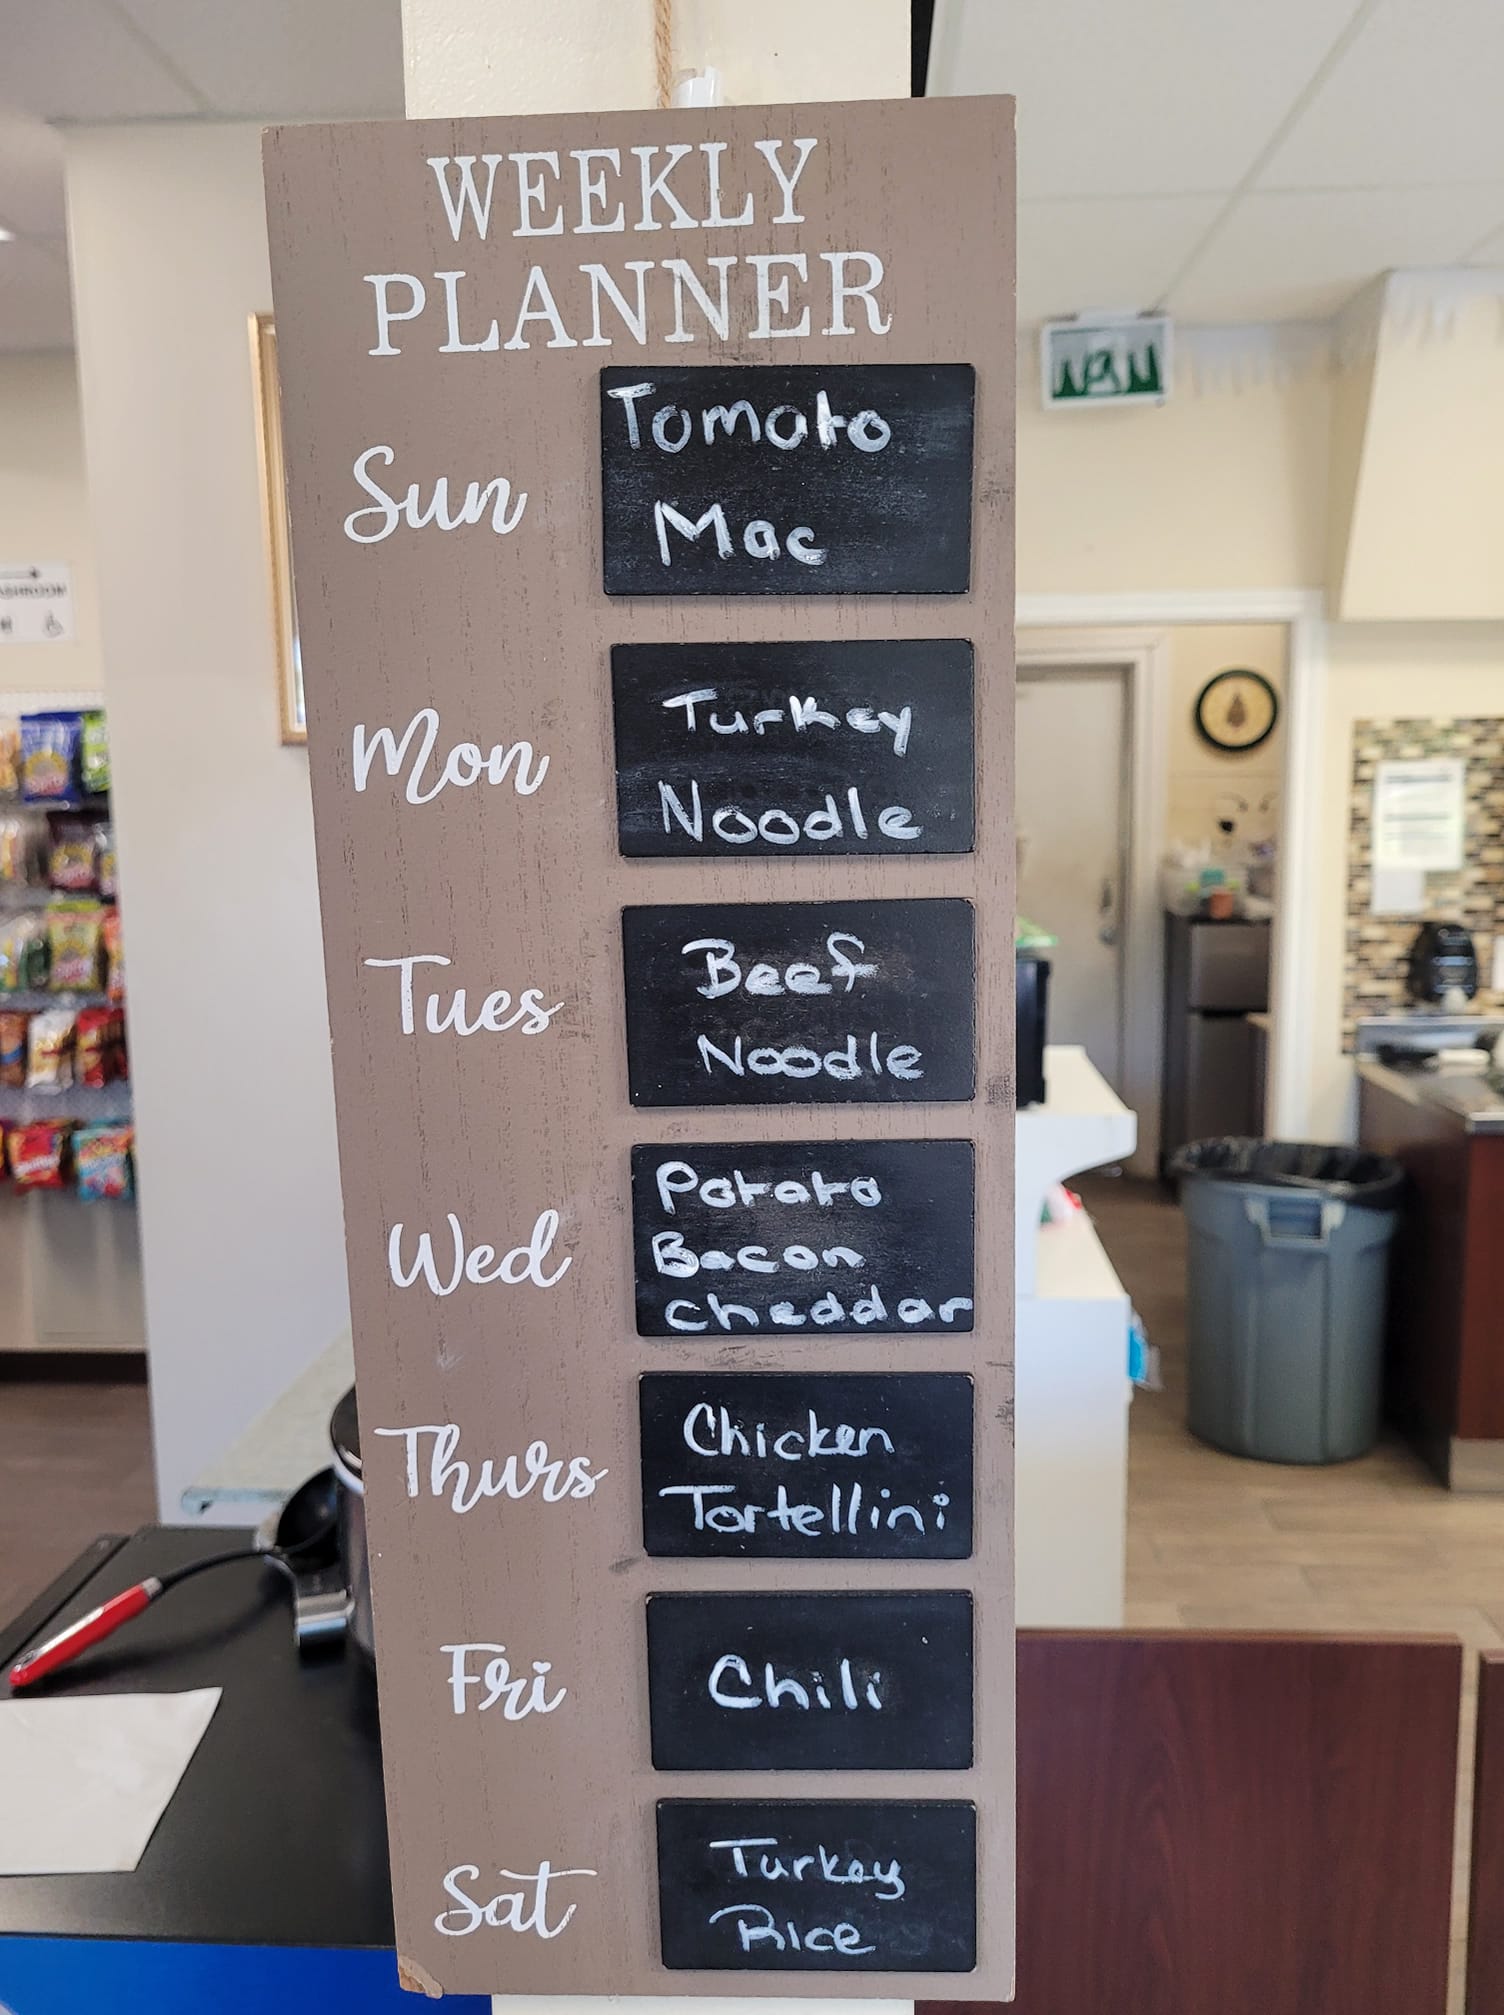 WEEKLY
PLANNER
Sun
Tomato
Mac
Mon
Turkey
Noodle
Tues
Beef
Noodle
Wed
Potato
Bacon
cheddar
Thurs
Chicken
Tortellini
Fri
Chili
Sat
Turkey
Rice